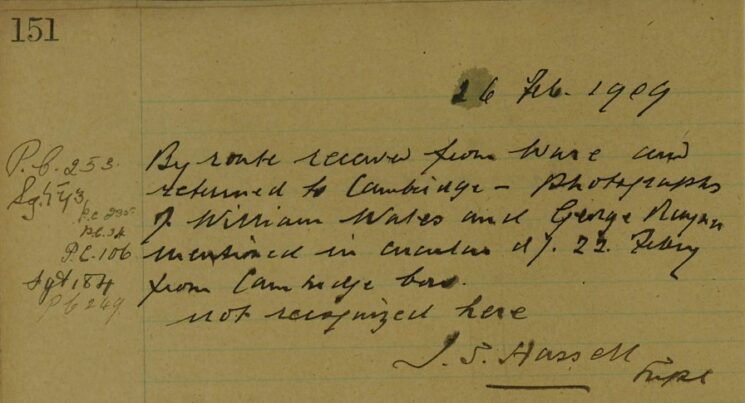 151
26 Feb. 1909
P.C. 253.
Sgt 43
P.C. 235
P.C. 106
Sgt 184
P.C 249
By route received from Ware and
returned to Cambridge - Photographs
of William Wates and George
mentioned in circular df. 22. Febry
from Cambridge boro.
not recognized here
J. S. Hassell
Supt